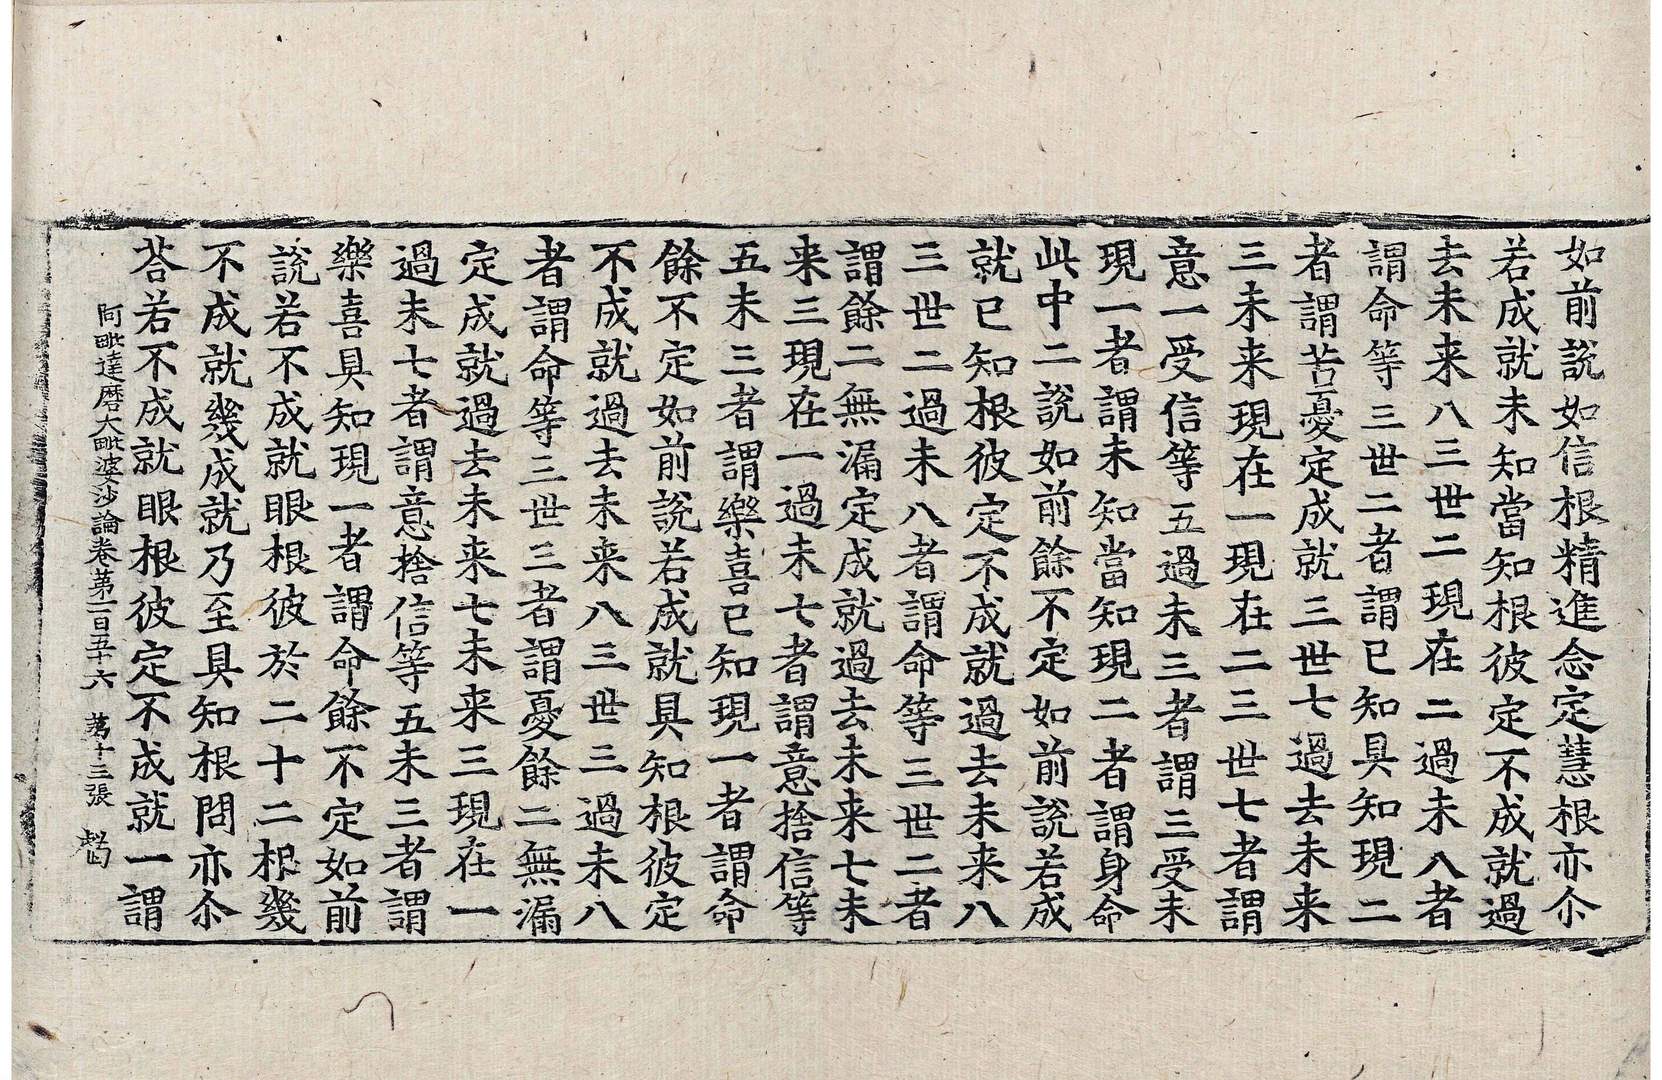 如前說如信根精進念定慧根亦尒
若成就未知當知根彼定不成就過
去未来八三世二現在二過未八者
謂命等三世二者謂已知具知現二
者謂苦憂定成就三世七過去未来
三未来現在一現在二三世七者謂
意一受信等五過未三者謂三受未
現一者謂未知當知現二者謂身命
此中二說如前餘不定如前說若成
就已知根彼定不成就過去未来八
三世二過未八者謂命等三世二者
謂餘二無漏定成就過去未来七未
来三現在一過未七者謂意捨信等
五未三者謂樂喜已知現一者謂命
餘不定如前說若成就具知根彼定
不成就過去未来八三世三過未八
者謂命等三世三者謂憂餘二無漏
定成就過去未来七未来三現在一
過未七者謂意捨信等五未三者謂
樂喜具知現一者謂命餘不定如前
說若不成就眼根彼於二十二根幾
不成就幾成就乃至具知根問亦尒
荅若不成就眼根彼定不成就一謂
阿毗達磨大毗婆沙論卷第一百五十六 苐十三張